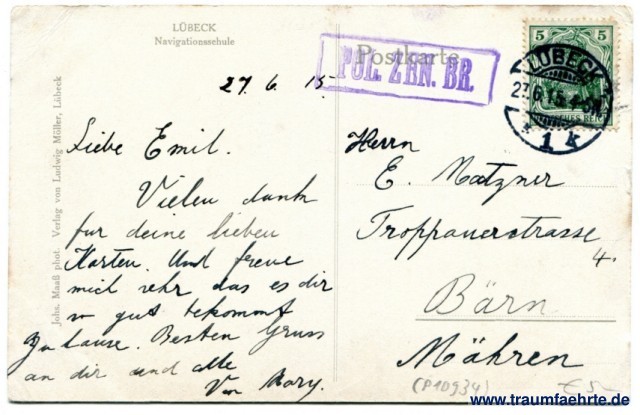 LÜBECK
Navigationsschule
Postkarte
27 6 15
POL. ZRN. BR.
5 5
LÜBECK
27.6.15.4-5N
* 1 k
Liebe Emil.
Vielen dank
fur deine lieben
Karten. Und freue
mich sehr das es dir
so gut bekommt
zu Hause. Besten Gruss
an dir und alle
Von Mary.
Herrn
E. Matzner
Troppauerstrasse
4.
Bärn
Mähren
(P10934)
€ 5-
Johs. Maaß phot. Verlag von Ludwig Möller, Lübeck
www.traumfaehrte.de